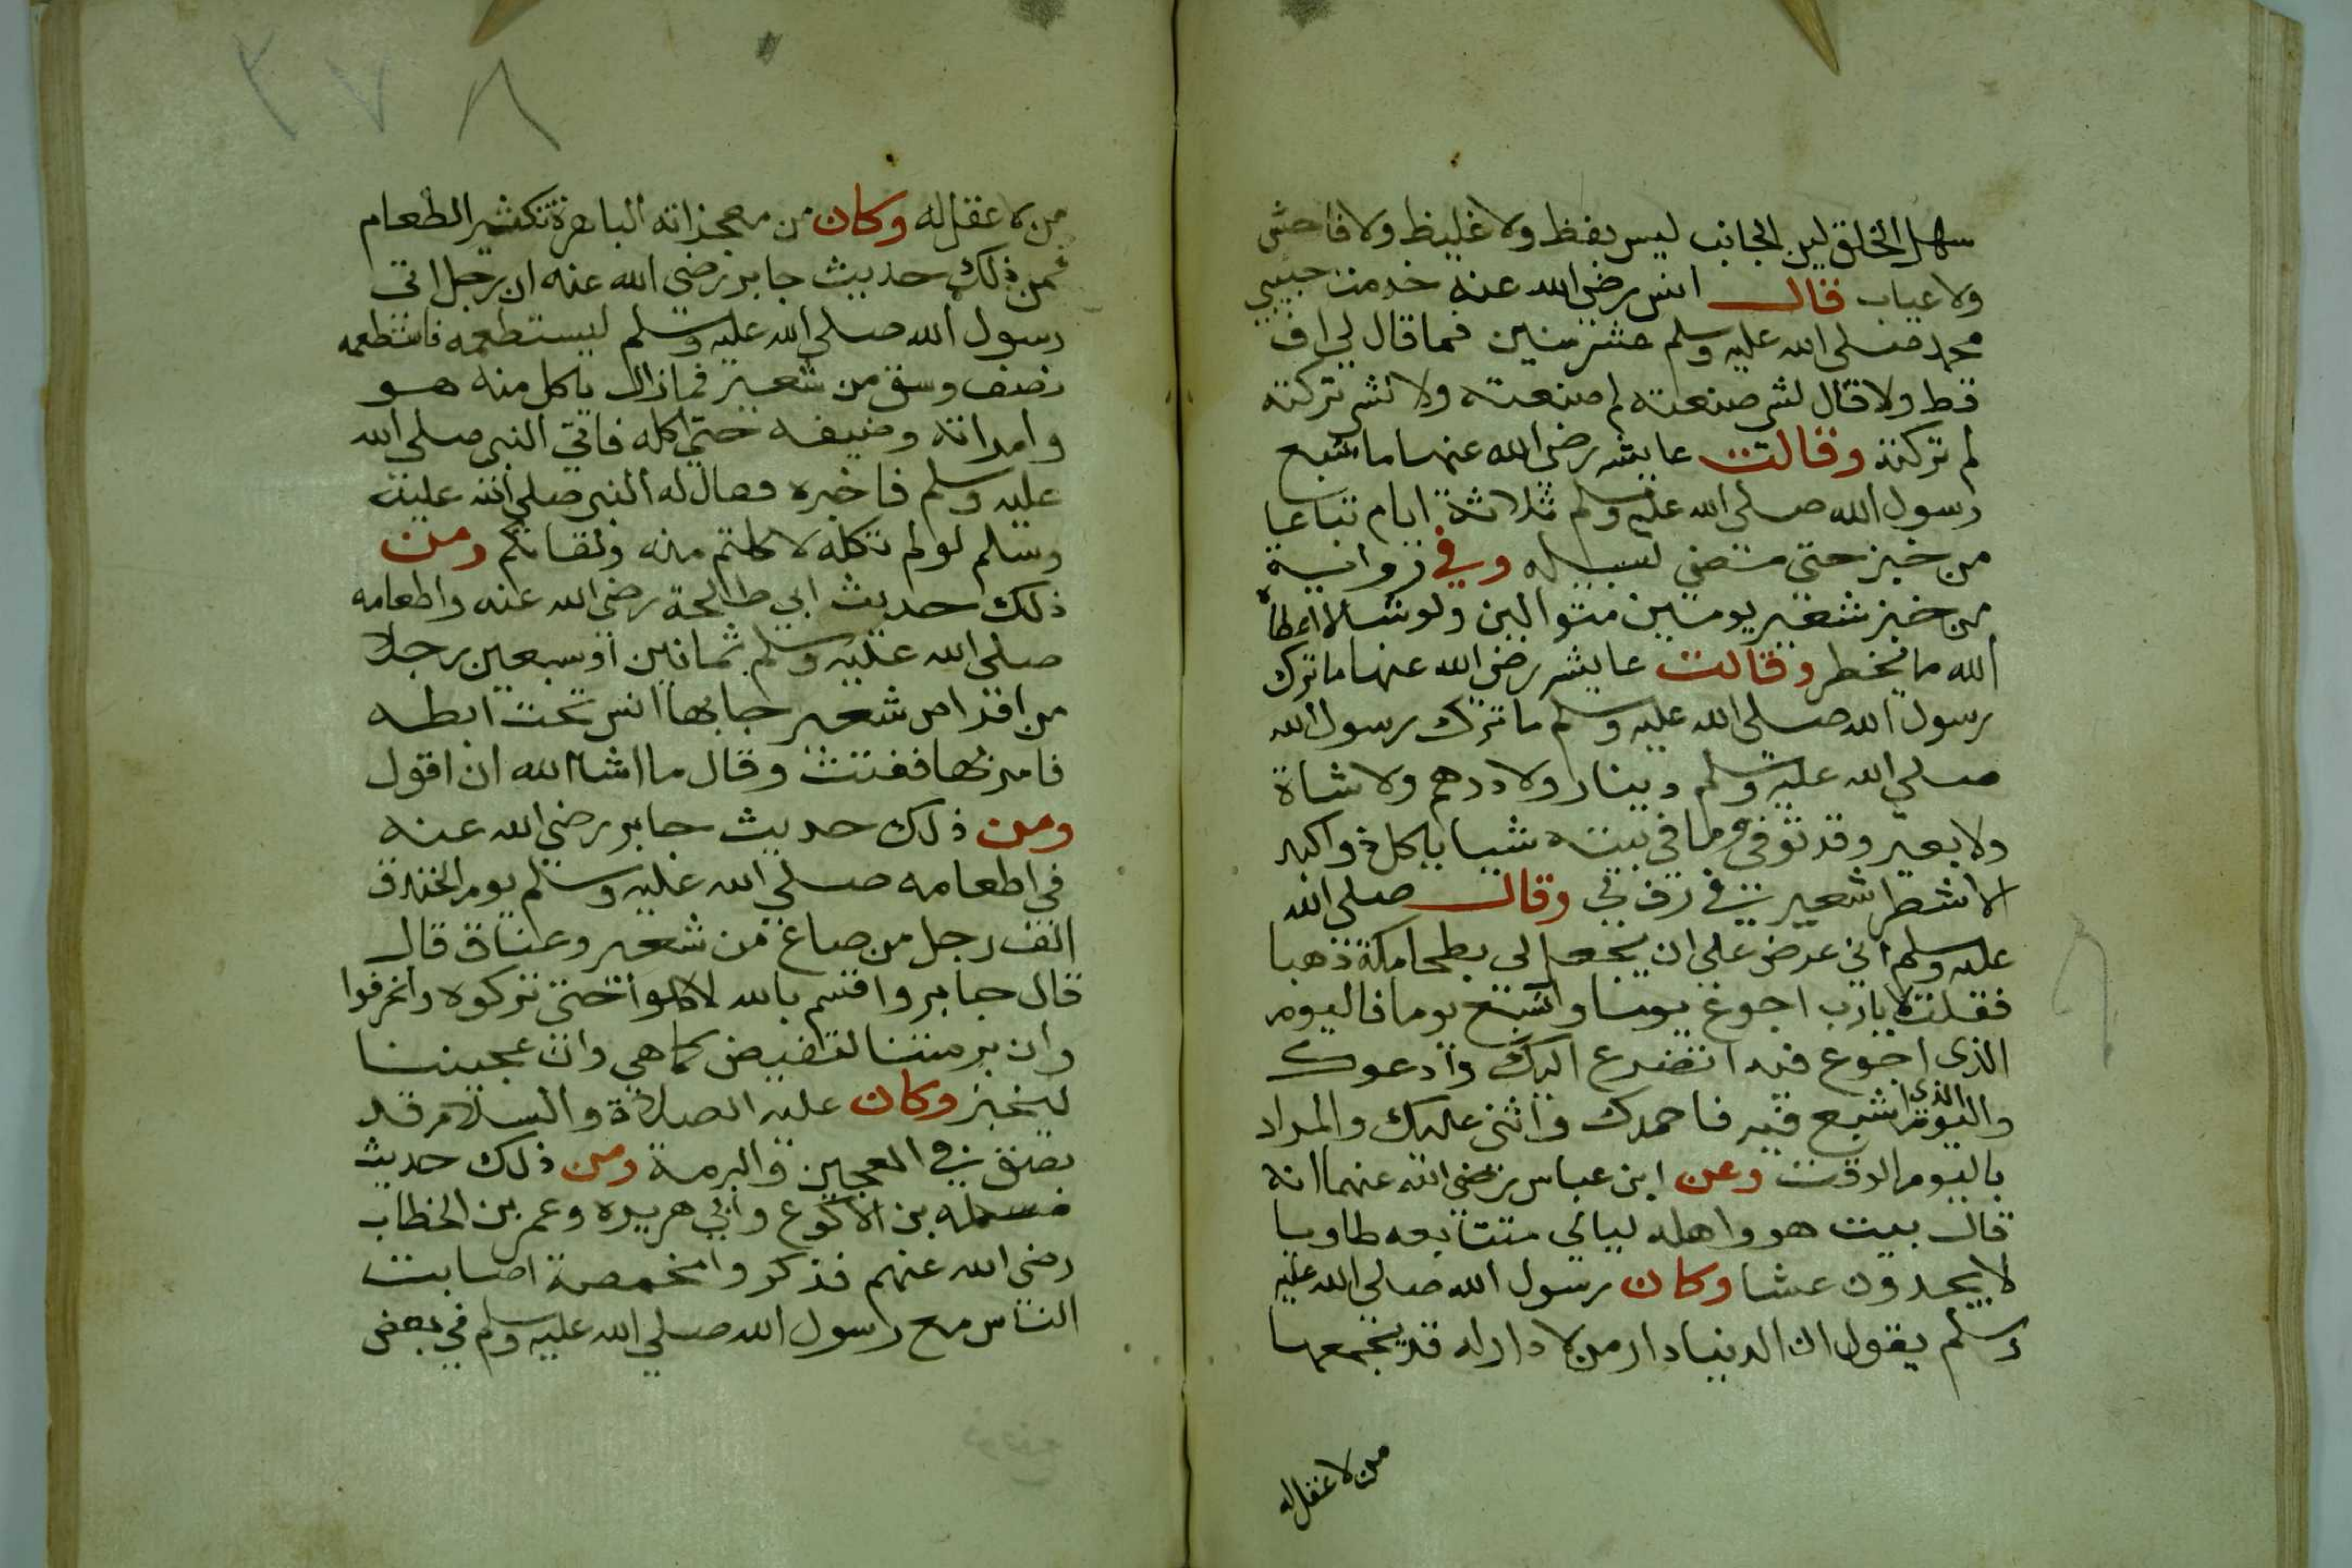 سهل الخلق لين الجانب ليس بفظ ولا غليظ ولا فاحش
ولا عياب قال انس رضي الله عنه خدمت حبيبي
محمد صلى الله عليه وسلم عشر سنين فما قال لي اف
قط ولا قال لشي صنعته لم صنعته ولا لشي تركته
لم تركته وقالت عايشه رضي الله عنها ما شبع
رسول الله صلى الله عليه وسلم ثلاثة ايام تباعا
من خبز حتى مضي لسبيله وفي رواية
من خبز شعير يومين متواليين ولو شا لاعطاه
الله ما يخطر وقالت عايشه رضي الله عنها ما ترك
رسول الله صلى الله عليه وسلم ما ترك رسول الله
صلى الله عليه وسلم دينار ولا درهم ولا شاة
ولا بعير وقد توفي وما في بيته شيا ياكل ذو اكبد
الا شطر شعير في رف لي وقال صلى الله
عليه وسلم اني عرض علي ان يجعل لي بطحا مكة ذهبا
فقلت لا يارب اجوع يوما واشبع يوما فاليوم
الذي اجوع فيه اتضرع اليك وادعوك
واليوم الذي اشبع فيه فاحمدك واثني عليك والمراد
باليوم الوقت وعن ابن عباس رضي الله عنهما انه
قال بيت هو واهله ليالي متتابعه طاويا
لا يجدون عشا وكان رسول الله صلى الله عليه
وسلم يقول ان الدنيا دار من لا دار له قد يجمعها
من لا عقل له
٢٧٨
من لا عقل له وكان من معجزاته الباهرة تكثير الطعام
فمن ذلك حديث جابر رضي الله عنه ان رجل اتى
رسول الله صلى الله عليه وسلم ليستطعمه فاستطعمه
نصف وسق من شعير فمازال ياكل منه هو
وامراته وضيفه حتى اكله فاتى النبي صلى الله
عليه وسلم فاخبره فقال له النبي صلى الله عليه
وسلم لو لم تكله لاكلتم منه ولقا بكم ومن
ذلك حديث ابي طالحة رضي الله عنه واطعامه
صلى الله عليه وسلم ثمانين او سبعين رجلا
من اقراص شعير جا بها انس تحت ابطه
فامر بها ففتت وقال ما اشا الله ان اقول
ومن ذلك حديث جابر رضي الله عنه
في اطعامه صلى الله عليه وسلم يوم الخندق
الف رجل من صاع من شعير وعناق قال
قال جابر واقسم بالله لاكلوا حتى تركوه وانحرفوا
وان برمتنا لتفيض كما هي وان عجيننا
ليخبز وكان عليه الصلاة والسلام قد
بصق في العجين والبرمة ومن ذلك حديث
مسلمه بن الاكوع وابي هريره وعمر بن الخطاب
رضي الله عنهم فذكروا مخمصة اصابت
الناس مع رسول الله صلى الله عليه وسلم في بعض